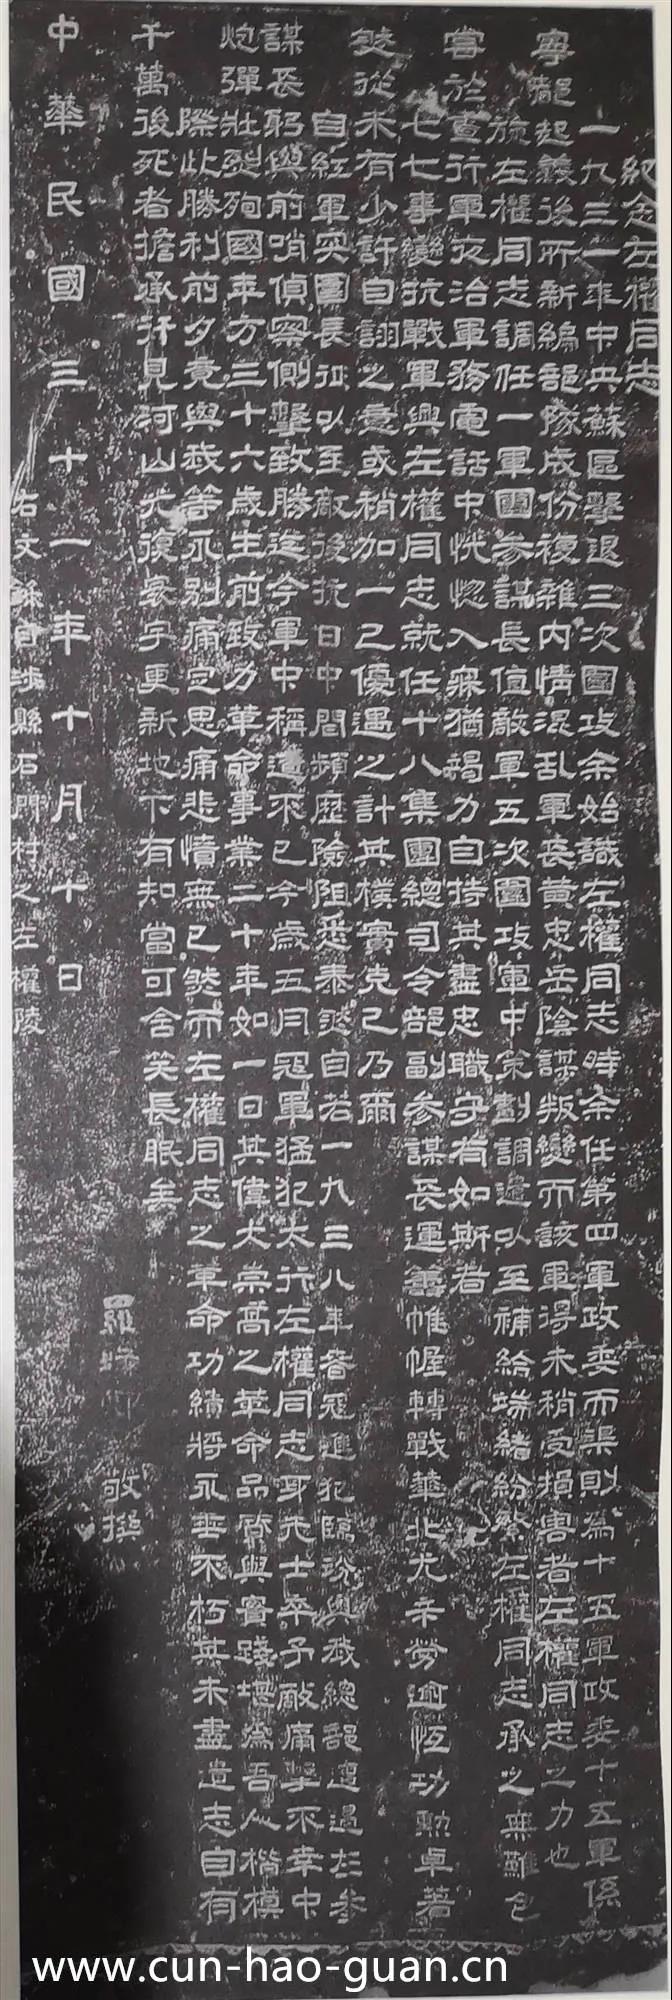 紀念左權同志
一九三一年中央蘇區擊退三次圍攻余始識左權同志時余任第四軍政委而渠則為十五軍政委十五軍係
寧都起義後所新編部隊成份複雜內情混乱軍長黃忠岳陰謀叛變而該軍得未稍受損害者左權同志之力也
旋左權同志調任一軍團參謀長值敵軍五次圍攻軍中策劃調遣以至補給瑞緒紛繁左權同志承之無難色
嘗於查行軍夜治軍務電話中恍惚入寐猶竭力自持其盡忠職守有如斯者
七七事變抗戰軍興左權同志就任十八集團總司令部副參謀長運籌帷幄轉戰華北尤辛勞逾恆功勳卓著
然從未有少許自詡之意或稍加一己優遇之計其樸實克己乃爾
自紅軍突圍長征以至敵後抗日中間頻歷險阻悉泰然自若一九三八年春寇進犯臨汾與我總部遭遇左參
謀長躬與前哨偵察側擊致勝迄今軍中稱道不已今歲五月寇軍猛犯太行左權同志身先士卒予敵痛擊不幸中
炮彈壯烈殉國年方三十六歲生前致力革命事業二十年如一日其偉大崇高之革命品質與實踐堪為吾人楷模
際此勝利前夕竟與我等永別痛定思痛悲憤無已然而左權同志之革命功績將永垂不朽其未盡遺志自有
千萬後死者擔承行見河山光復寰宇更新地下有知當可含笑長眠矣
羅 敬撰
中華民國三十一年十月十日
右文 縣石門村之左權陵
www.cun-hao-guan.cn